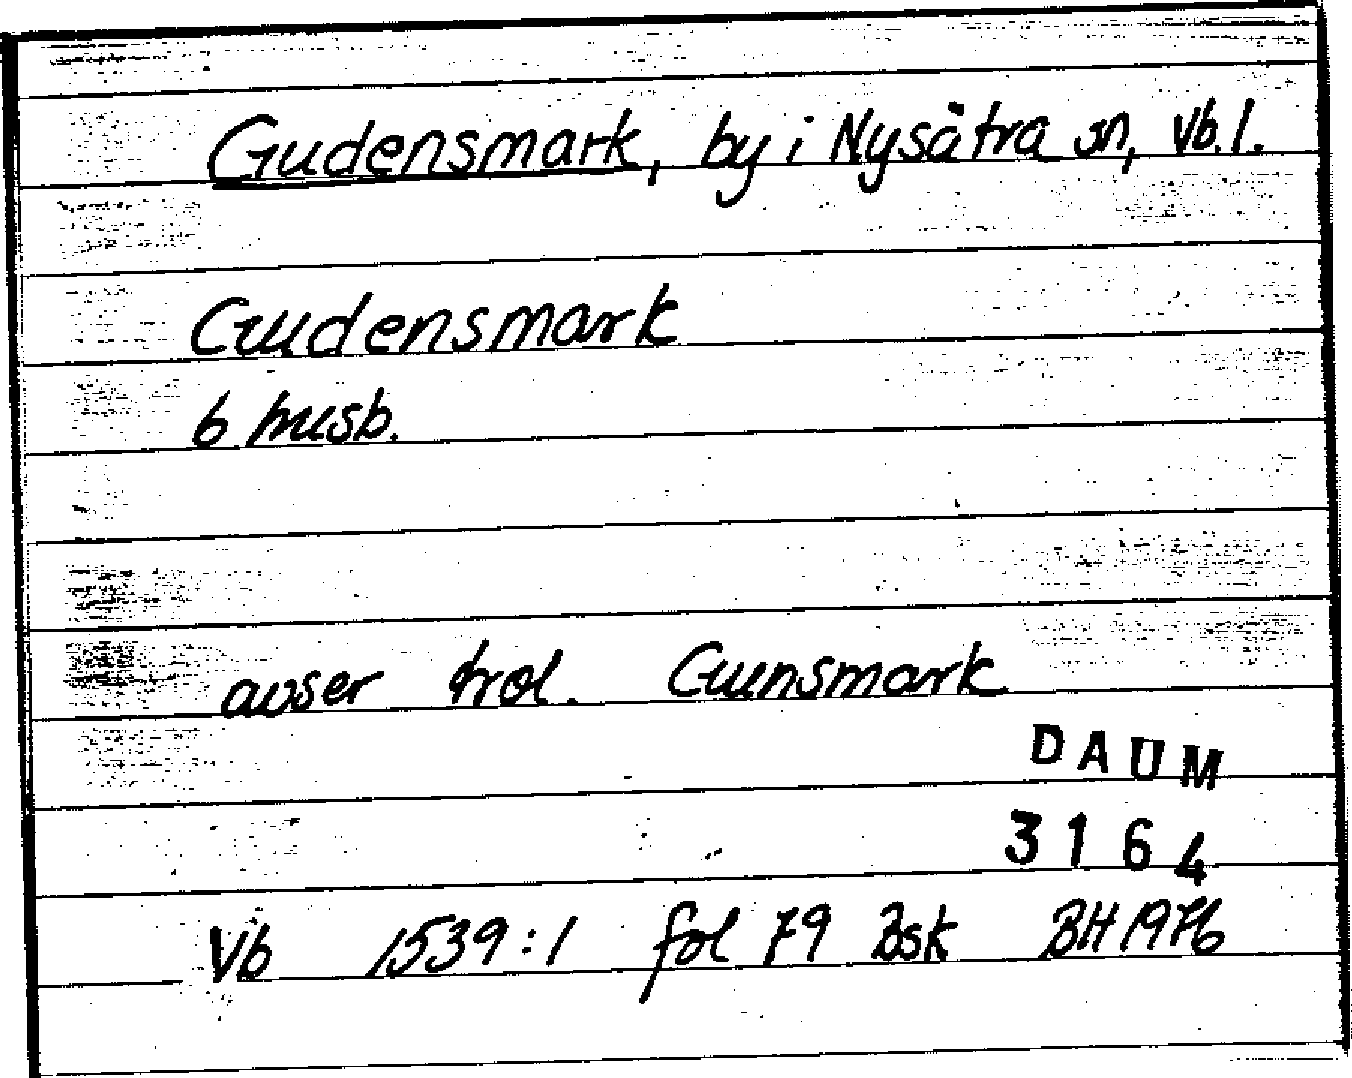 Gudensmark, by i Nysätra sn, Vb. l.
Gudensmark
6 husb.
avser trol. Gunsmark
DAUM
3164
Vb 1539:1 fol 79 Bsk BH 1976